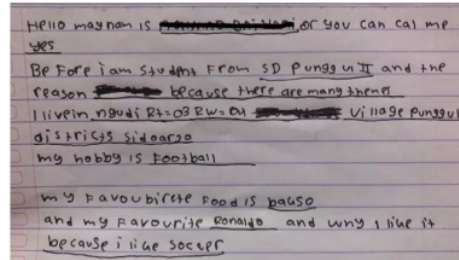 Hello may nam is or you can cal me
yes
Before i am student From SD Punggul II and the
reason because there are many themes
I live in ngudi Rt=03 RW=04 village Punggul
districts sidoarjo
my hobby is Football
my Favoubircte Food is bakso
and my Favourite Ronaldo and why i like it
because i like soccer